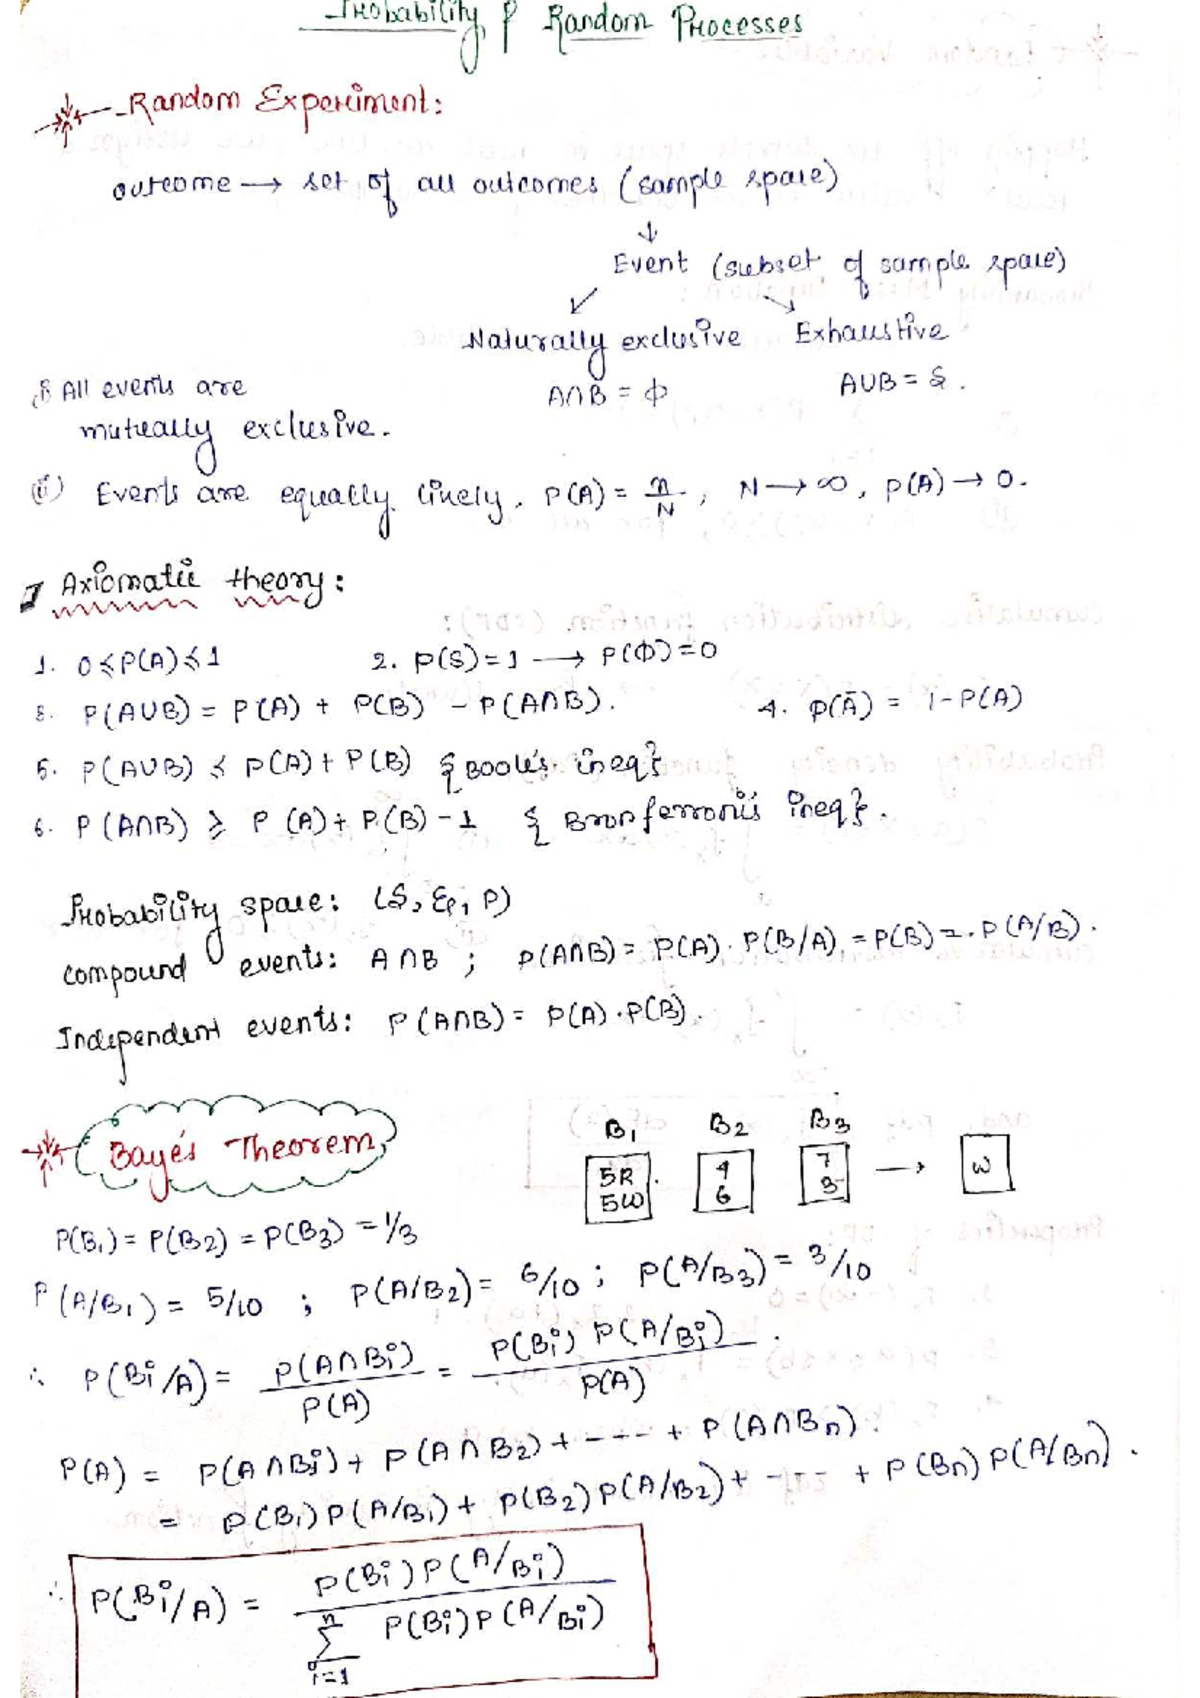 Probability & Random Processes
Random Experiment:
outcome → set of all outcomes (sample space)
↓
Event (subset of sample space)
Naturally exclusive Exhaustive
A∩B = ϕ A∪B = S.
i) All events are
mutually exclusive.
(ii) Events are equally likely. P(A) = n/N, N → ∞, P(A) → 0.
Axiomatic theory:
1. 0 ≤ P(A) ≤ 1 2. P(S) = 1 → P(Φ) = 0
3. P(A∪B) = P(A) + P(B) - P(A∩B). 4. P(Ā) = 1 - P(A)
5. P(A∪B) ≤ P(A) + P(B) {Boole's ineq}
6. P(A∩B) ≥ P(A) + P(B) - 1 { Bronferroni's ineq}.
Probability space: (S, Ep, P)
compound events: A∩B ; P(A∩B) = P(A). P(B/A) = P(B) =. P(A/B).
Independent events: P(A∩B) = P(A) . P(B).
B1 B2 B3
Baye's Theorem
5R 4 7 → W
5W 6 3
P(B1) = P(B2) = P(B3) = 1/3
P(A/B1) = 5/10 ; P(A/B2) = 6/10 ; P(A/B3) = 3/10
∴ P(Bi/A) = P(A∩Bi)/P(A) = P(Bi) P(A/Bi)/P(A).
P(A) = P(A∩Bi) + P(A∩B2) + --- + P(A∩Bn).
= P(B1) P(A/B1) + P(B2) P(A/B2) + --- + P(Bn) P(A/Bn).
∴ P(Bi/A) = P(Bi) P(A/Bi) / n Σ i=1 P(Bi) P(A/Bi)